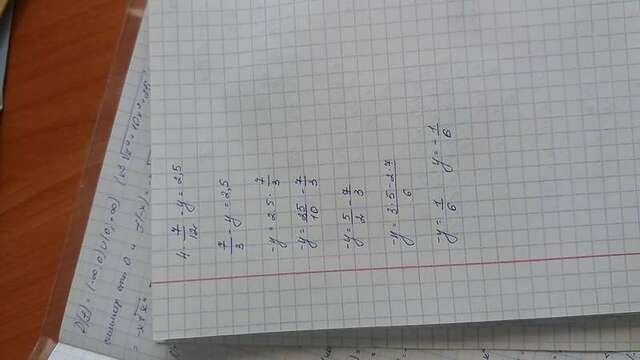 D(f) = (-∞; 0) ∪ (0; +∞)
симметр отн 0 и f(-x) =
4 · 7/12 - y = 2,5
7/3 - y = 2,5
-y = 2,5 - 7/3
-y = 25/10 - 7/3
-y = 5/2 - 7/3
-y = 3·5 - 2·7/6
-y = 1/6 y = - 1/6